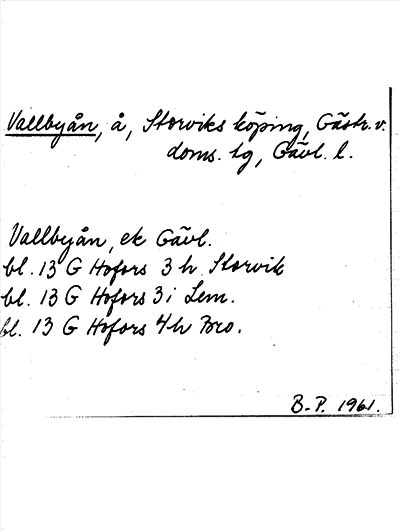 Vallbyån, å, Storviks köping, Gästr. v.
doms. tg, Gävl. l.
Vallbyån, ek Gävl.
bl. 13 G Hofors 3 h Storvik
bl. 13 G Hofors 3 i Lem.
bl. 13 G Hofors 4 h Bro.
B. P. 1961.